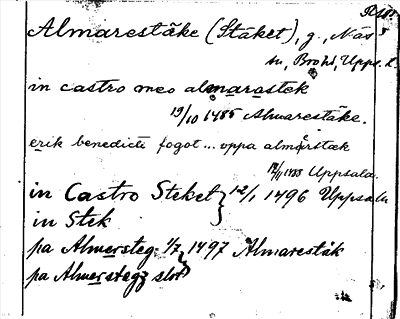 Almarestäke (Stäket), g., Näs
sn, Bro hd, Upps. l.
in castro meo almarastek
19/10 1485 Almarestäke.
erik benedicti fogot ... vppa almarstæk
1488 Uppsala.
in Castro Steket } 12/1 1496 Uppsala
in Stek
pa Almersteg 1/7 } 1497 Almarestäk
pa Almerstegz slot